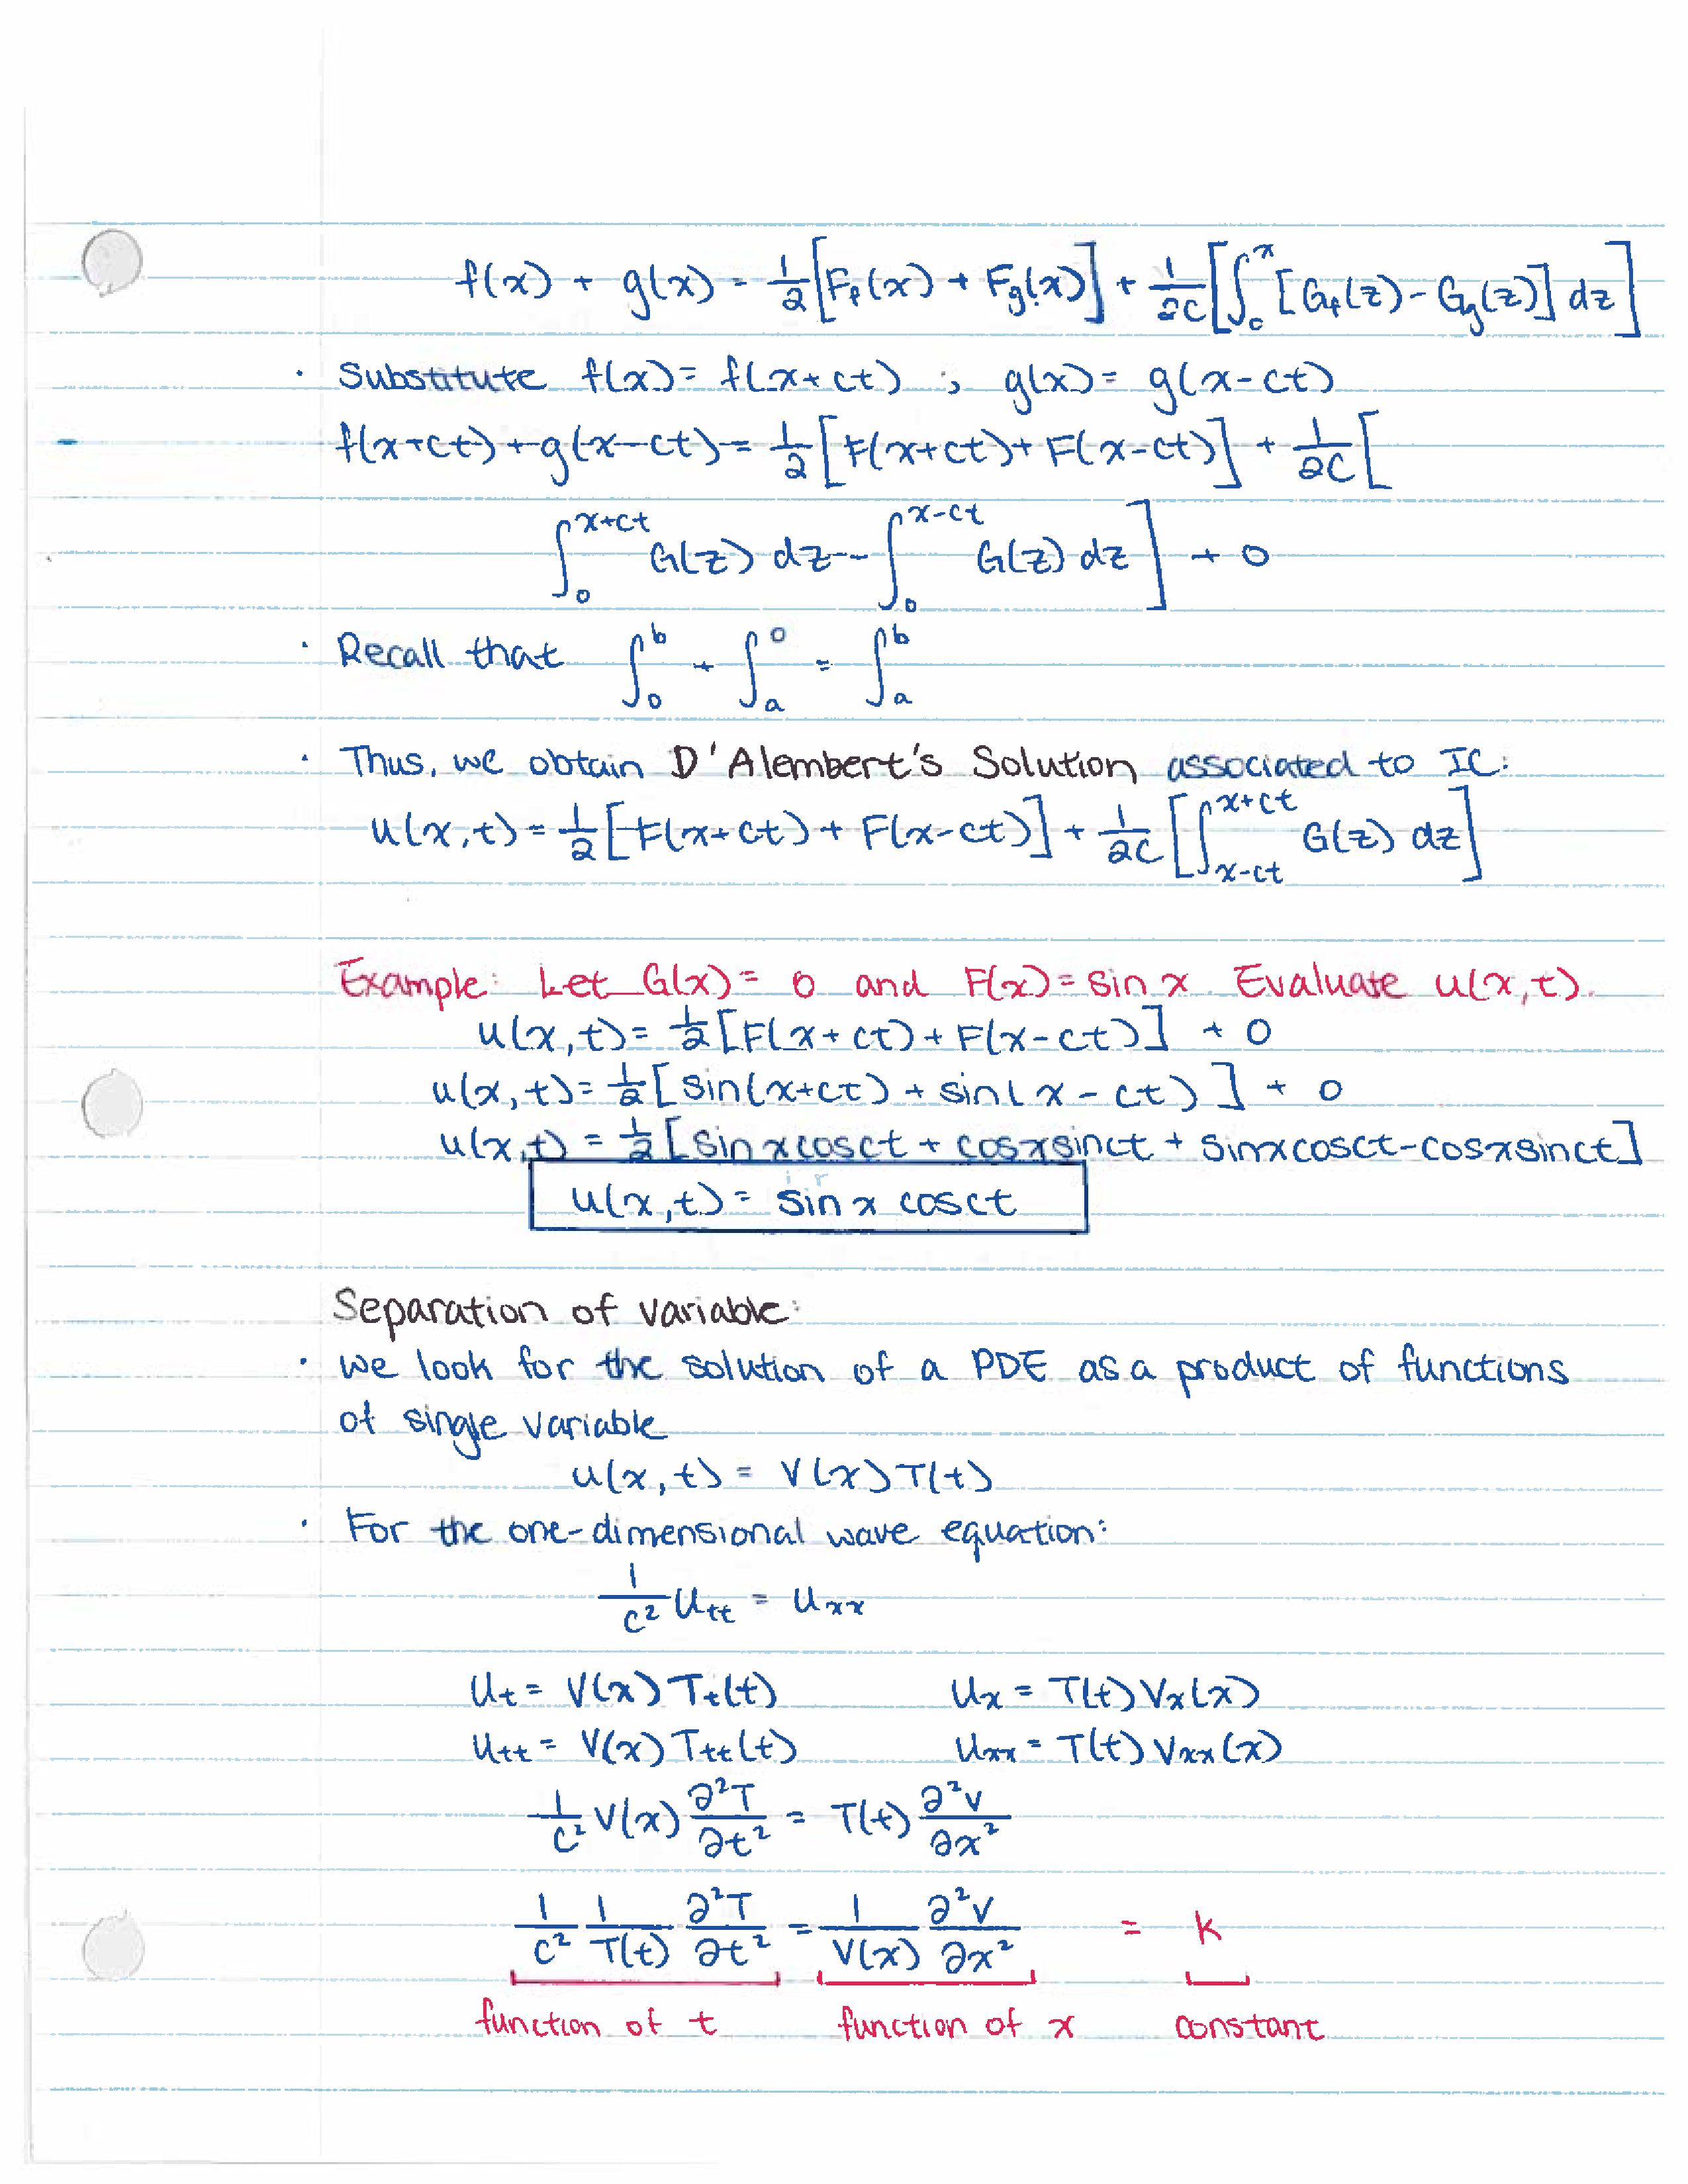 f(x) + g(x) = 1/2 [F_f(x) + F_g(x)] + 1/2C [∫_0^x [G_f(z) - G_g(z)] dz]
· Substitute f(x) = f(x+ct) ; g(x) = g(x-ct)
f(x+ct) + g(x-ct) = 1/2 [F(x+ct) + F(x-ct)] + 1/2C [
∫_0^{x+ct} G(z) dz - ∫_0^{x-ct} G(z) dz] + 0
· Recall that ∫_0^b + ∫_a^0 = ∫_a^b
· Thus, we obtain D'Alembert's Solution associated to IC:
u(x,t) = 1/2 [F(x+ct) + F(x-ct)] + 1/2C [∫_{x-ct}^{x+ct} G(z) dz]
Example: Let G(x) = 0 and F(x) = sin x. Evaluate u(x,t).
u(x,t) = 1/2 [F(x+ct) + F(x-ct)] + 0
u(x,t) = 1/2 [sin(x+ct) + sin(x-ct)] + 0
u(x,t) = 1/2 [sinxcosct + cosxsinct + sinxcosct-cosxsinct]
u(x,t) = sinx cosct
Separation of variable:
· we look for the solution of a PDE as a product of functions
of single variable
u(x,t) = V(x)T(t)
· For the one-dimensional wave equation:
1/c² U_tt = U_xx
U_t = V(x)T_t(t) U_x = T(t)V_x(x)
U_tt = V(x)T_tt(t) U_xx = T(t)V_xx(x)
1/c² V(x) ∂²T/∂t² = T(t) ∂²V/∂x²
1/c² 1/T(t) ∂²T/∂t² = 1/V(x) ∂²V/∂x² = k
function of t function of x constant